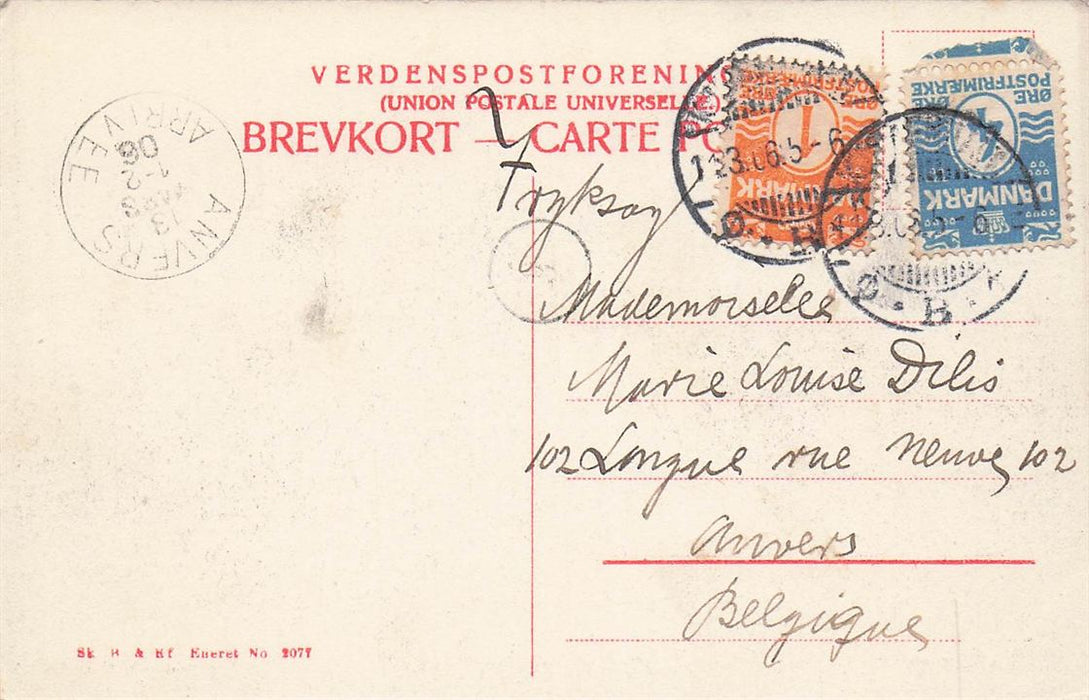 VERDENSPOSTFORENING
(UNION POSTALE UNIVERSELLE.)
BREVKORT — CARTE PO
ANVERS
13
MARS
1-2
06
ARRIVEE
1
ØRE
POSTFRIMÆRKE
DANMARK
4
ØRE
POSTFRIMÆRKE
DANMARK
11.3.06.5-6
Ø. B.
Ø. B.
Tryksag
Mademoiselle
Marie Louise Dilis
102 Longue rue Neuve 102
Anvers
Belgique
Sk. B & Kf Eneret No 2077